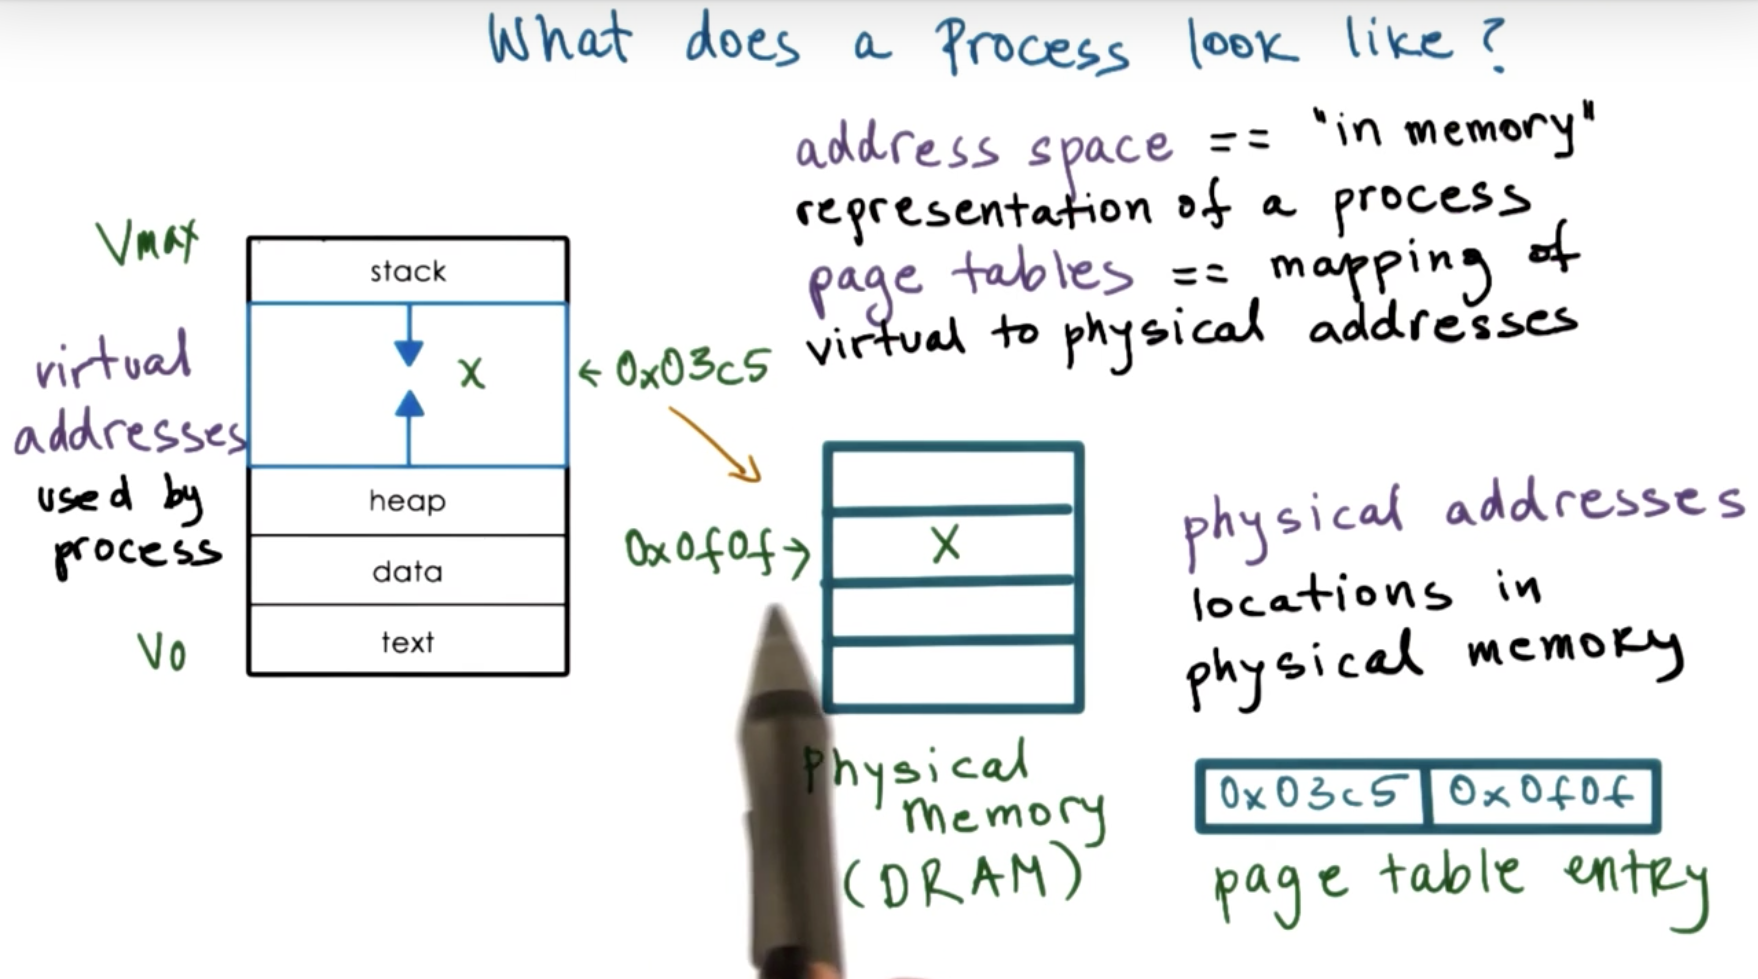 What does a Process look like?
address space == "in memory"
representation of a process
page tables == mapping of
virtual to physical addresses
Vmax
stack
virtual
addresses
used by
process
x
← 0x03c5
heap
data
V0
text
0x0f0f →
X
physical
memory
(DRAM)
physical addresses
locations in
physical memory
0x03c5 0x0f0f
page table entry